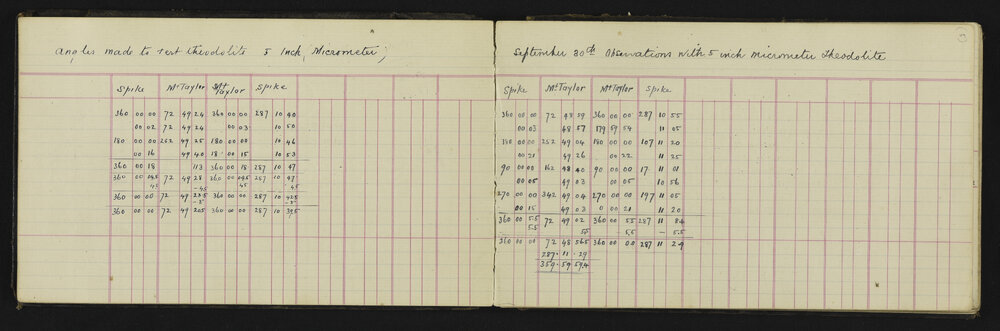 Angles made to test theodolite 5 Inch Micrometer
Spike Mt Taylor Mt Taylor Spike
360 00 00 72 49 24 360 00 00 287 10 40
00 02 72 49 24 00 03 10 50
180 00 00 252 49 25 180 00 00 10 46
00 16 49 40 18 00 15 10 53
360 00 18 113 360 00 18 287 10 47
360 00 04.5 72 49 28 360 00 04.5 287 10 47
4.5 -4.5 4.5 4.5
360 00 00 72 49 360 00 00 287 10 42.5
360 00 00 72 49 20.5 360 00 00 287 10 39.5
September 30th Observations with 5 inch micrometer Theodolite
Spike Mt Taylor Mt Taylor Spike
360 00 00 72 48 59 360 00 00 287 10 55
00 03 48 57 179 59 59 11 05
180 00 00 252 49 04 180 00 00 107 11 20
00 21 49 26 00 22 11 25
90 00 00 162 48 40 90 00 00 17 11 01
00 05 49 03 00 05 10 56
270 00 00 342 49 04 270 00 00 197 11 05
00 15 49 03 0 00 21 11 20
360 00 5.5 72 49 02 360 00 5.5 287 11 8.4
5.5 5.5 5.5 - 5.5
360 00 00 72 48 56.5 360 00 00 287 11 2.9
287 11 29
359 59 59.4